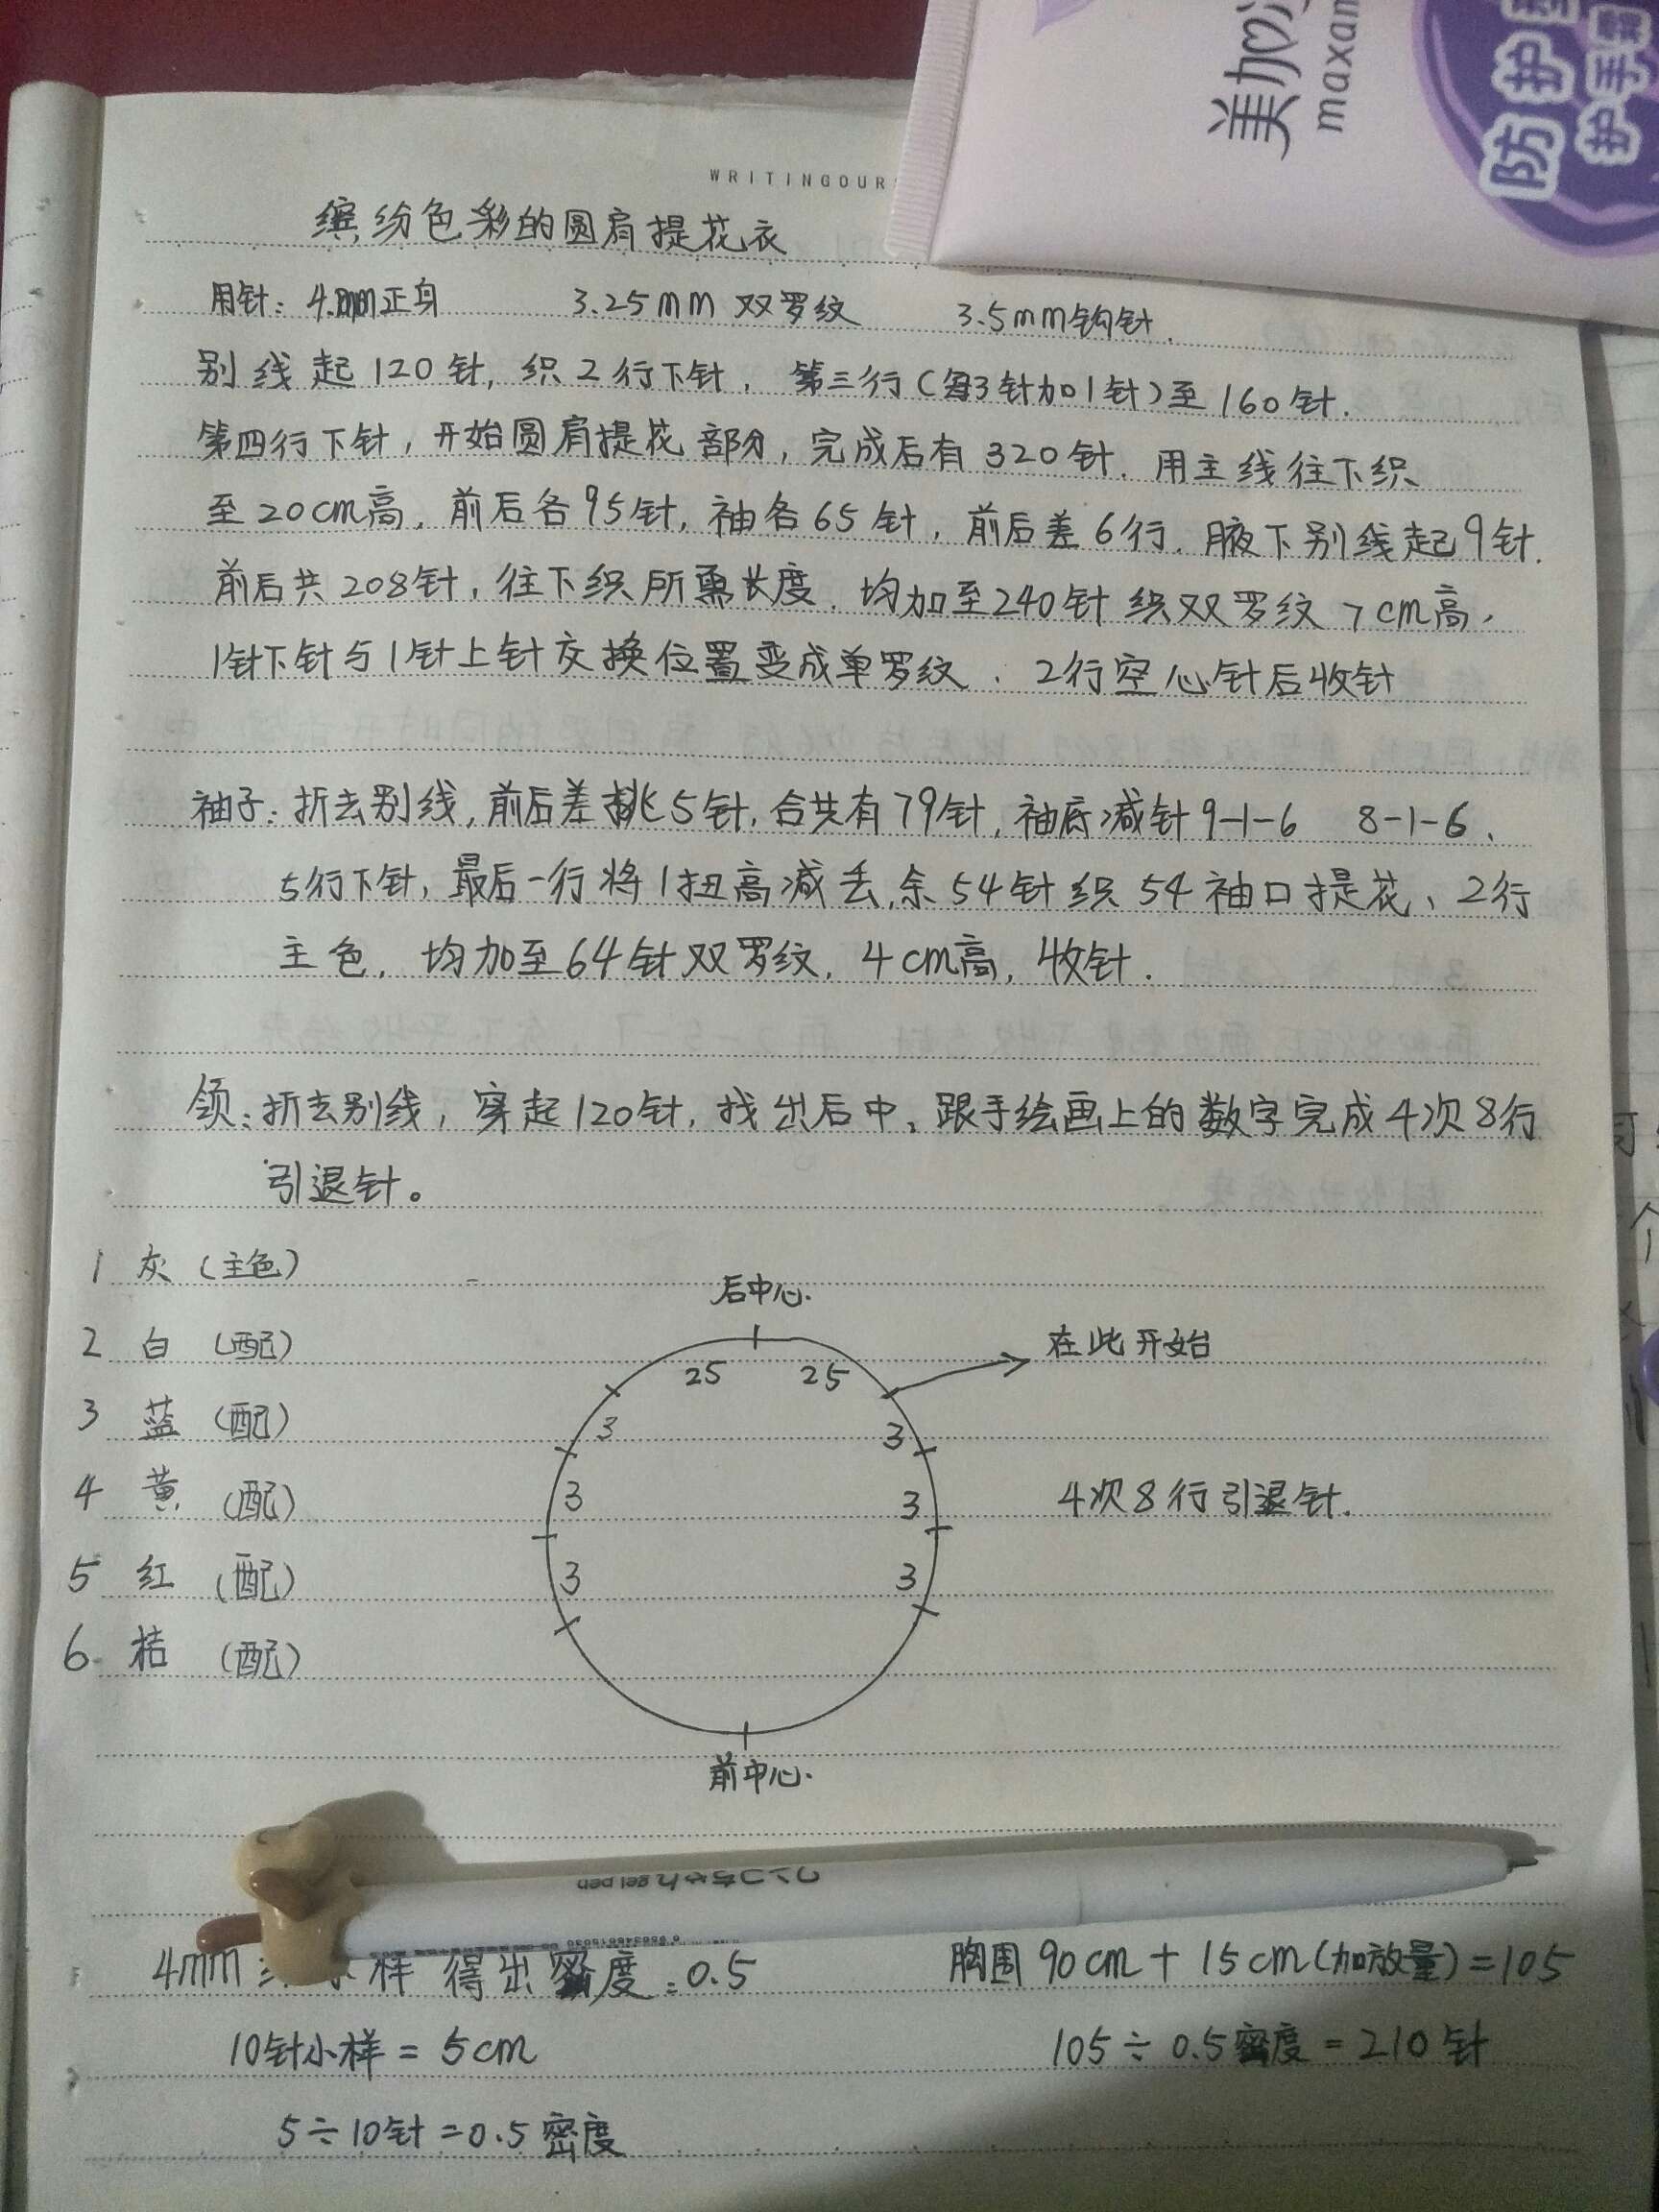 美加净
maxam
防护型
护手霜
WRITINGOUR
缤纷色彩的圆肩提花衣
用针: 4.0mm正身 3.25mm 双罗纹 3.5mm钩针.
别线起120针, 织2行下针, 第三行(每3针加1针)至160针.
第四行下针, 开始圆肩提花部分, 完成后有320针. 用主线往下织
至20cm高, 前后各95针, 袖各65针, 前后差6行. 腋下别线起9针.
前后共208针, 往下织所需长度. 均加至240针织双罗纹7cm高,
1针下针与1针上针交换位置变成单罗纹. 2行空心针后收针
袖子: 折去别线, 前后差挑5针, 合共有79针, 袖底减针9-1-6 8-1-6、
5行下针, 最后一行将1扭高减丢, 余54针织54袖口提花、2行
主色, 均加至64针双罗纹, 4cm高, 收针.
领: 折去别线, 穿起120针, 找出后中, 跟手绘画上的数字完成4次8行
引退针。
1 灰 (主色)
2 白 (配)
3 蓝 (配)
4 黄 (配)
5 红 (配)
6 桔 (配)
后中心.
25 25
在此开始
3 3
3 3
4次8行引退针.
3 3
前中心.
ワンコちゃん gel pen
4mm 样 得出密度: 0.5
10针小样 = 5cm
5÷10针 = 0.5密度
胸围90cm + 15cm(加放量) = 105
105÷0.5密度 = 210针